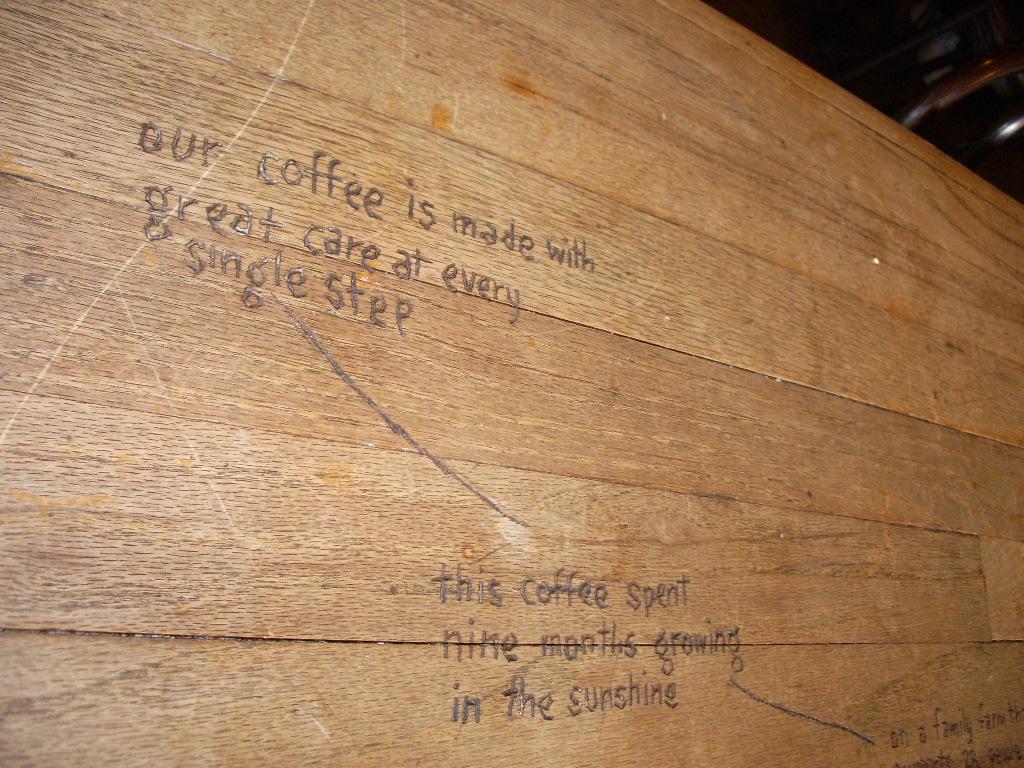 our coffee is made with
great care at every
single step
this coffee spent
nine months growing
in the sunshine
on a family farm